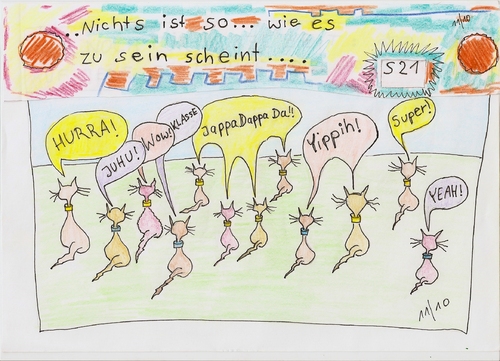 ..Nichts ist so... wie es
11/10
zu sein scheint....
S21
HURRA!
JUHU!
WOW!
KLASSE
JappaDappa Da!!
Yippih!
Super!
YEAH!
11/10